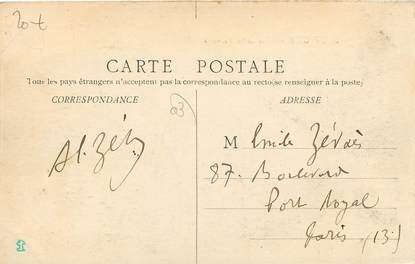 20 €
CARTE POSTALE
Tous les pays étrangers n'acceptent pas la correspondance au recto (se renseigner à la poste)
CORRESPONDANCE
ADRESSE
93
M Emile Zévaès
Al. Zév
87. Boulevard
Port Royal
Paris (13)